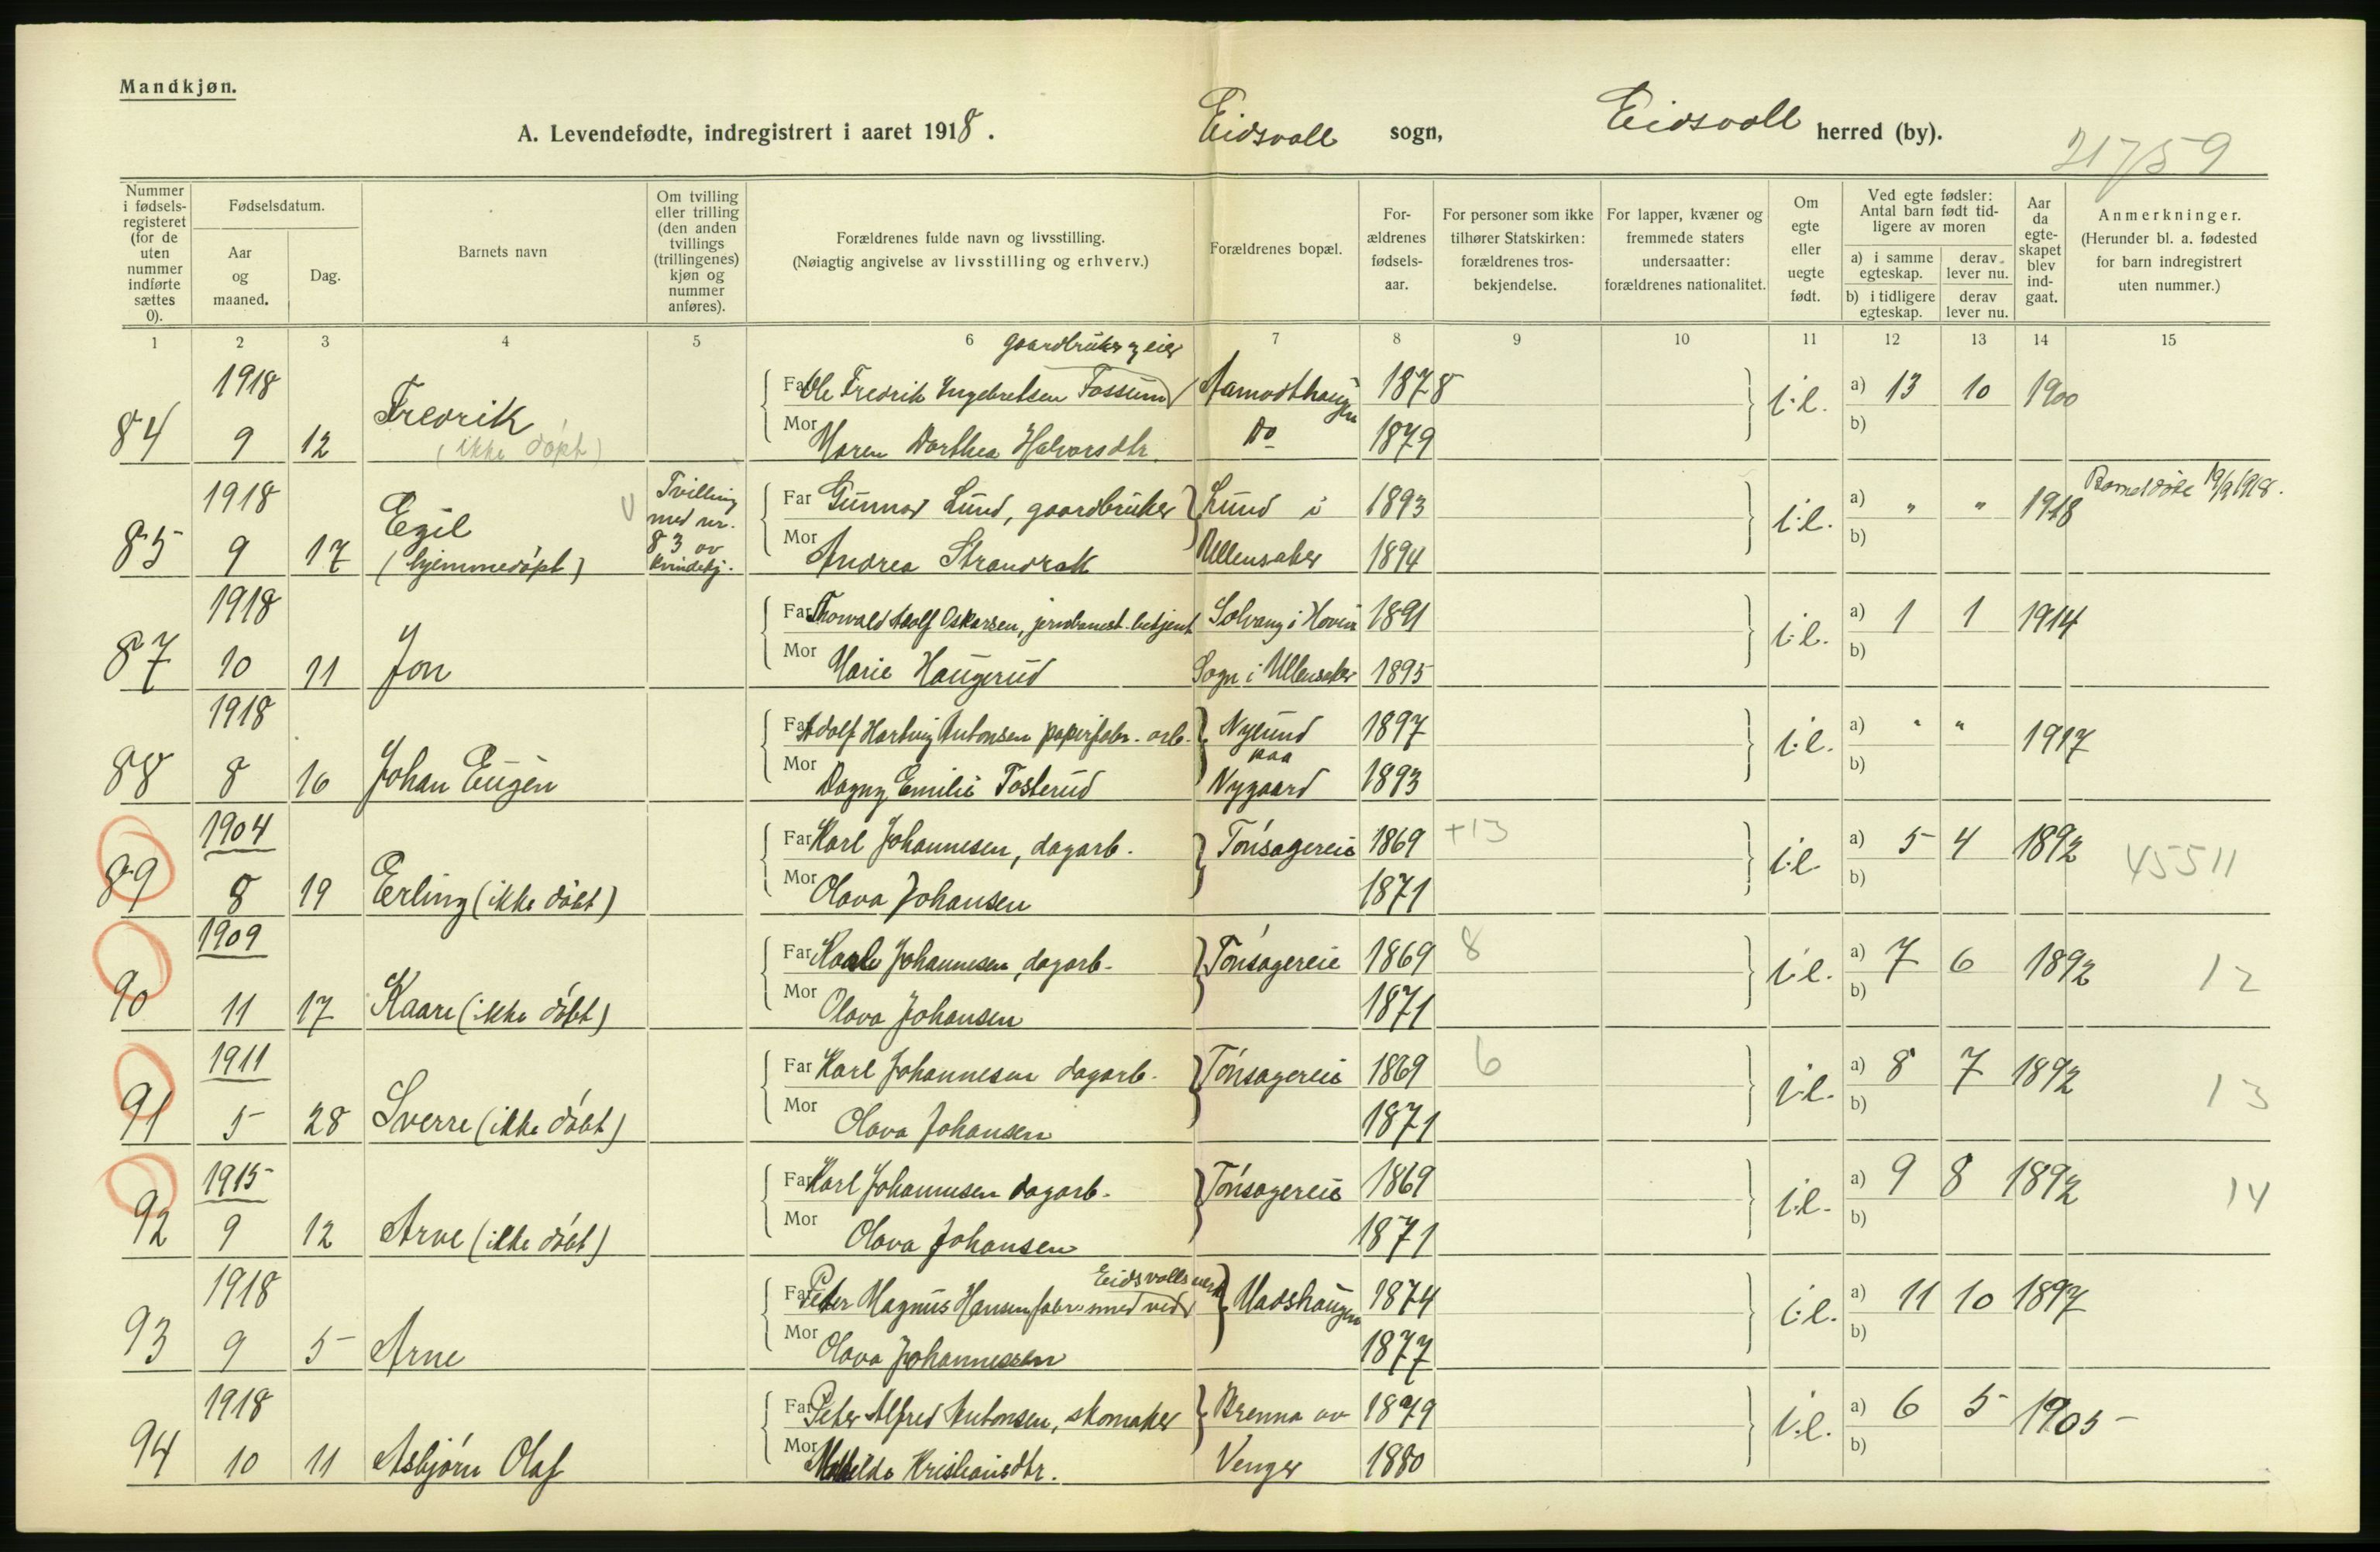 Mandkjøn.
A. Levendefødte, indregistrert i aaret 1918. Eidsvoll sogn, Eidsvoll herred (by).
21759
Nummer i fødselsregisteret (for de uten nummer indførte sættes 0).
Fødselsdatum.
Aar og maaned.
Dag.
Barnets navn
Om tvilling eller trilling (den anden tvillings (trillingenes) kjøn og nummer anføres).
Forældrenes fulde navn og livsstilling.
(Nøiagtig angivelse av livsstilling og erhverv.)
Forældrenes bopæl.
Forældrenes fødselsaar.
For personer som ikke tilhører Statskirken: forældrenes trosbekjendelse.
For lapper, kvæner og fremmede staters undersaatter: forældrenes nationalitet.
Om egte eller uegte født.
Ved egte fødsler: Antal barn født tidligere av moren
a) i samme egteskap. derav lever nu.
b) i tidligere egteskap. derav lever nu.
Aar da egteskapet blev indgaat.
Anmerkninger.
(Herunder bl. a. fødested for barn indregistrert uten nummer.)
1 2 3 4 5 6 7 8 9 10 11 12 13 14 15
gaardbruker og eier
1918 Far Ole Fredrik Engebretsen Fossum Aamodthaugen 1878 i.e. a) 13 10 1900
84 9 12 Fredrik (ikke døpt) Mor Maren Dorthea Halvorsdtr. Do 1879 b)
1918 Tvilling med nr. 83 av kvindekj. Far Gunnar Lund, gaardbruker Lund i 1893 i.e. a) " " 1918 19/9 1918.
85 9 17 Egil (hjemmedøpt) Mor Andrea Strandrak Ullensaker 1894 b)
1918 Far Thorvald Adolf Oskarsen, jernbanest. betjent Solvang i Hovin 1891 i.e. a) 1 1 1914
87 10 11 Jon Mor Marie Haugerud Sogn i Ullensaker 1895 b)
1918 Far Adolf Hartvig Antonsen papirfabr. arb. Nylund paa 1897 i.e. a) " " 1917
88 8 16 Johan Eugén Mor Dagny Emilie Tosterud Nygaard 1893 b)
1904 Far Karl Johannesen, dagarb. Tönsagereie 1869 +13 i.e. a) 5 4 1892 45511
89 8 19 Erling (ikke döbt) Mor Olava Johansen 1871 b)
1909 Far Karl Johannesen, dagarb. Tönsagereie 1869 8 i.e. a) 7 6 1892 12
90 11 17 Kaare (ikke döbt) Mor Olava Johansen 1871 b)
1911 Far Karl Johannesen dagarb. Tönsagereie 1869 6 i.e. a) 8 7 1892 13
91 5 28 Sverre (ikke döbt) Mor Olava Johansen 1871 b)
1915 Far Karl Johannesen dagarb. Tönsagereie 1869 i.e. a) 9 8 1892 14
92 9 12 Arne (ikke döbt) Mor Olava Johansen 1871 b)
Eidsvolls verk
1918 Far Peter Magnus Hansen fabr. smed ved Madshaugen 1874 i.e. a) 11 10 1897
93 9 5 Arne Mor Olava Johannessen 1877 b)
1918 Far Peter Alfred Antonsen, skomaker Brenna av 1879 i.e. a) 6 5 1905
94 10 11 Asbjörn Olaf Mor Mathilde Kristiansdtr. Venger 1880 b)